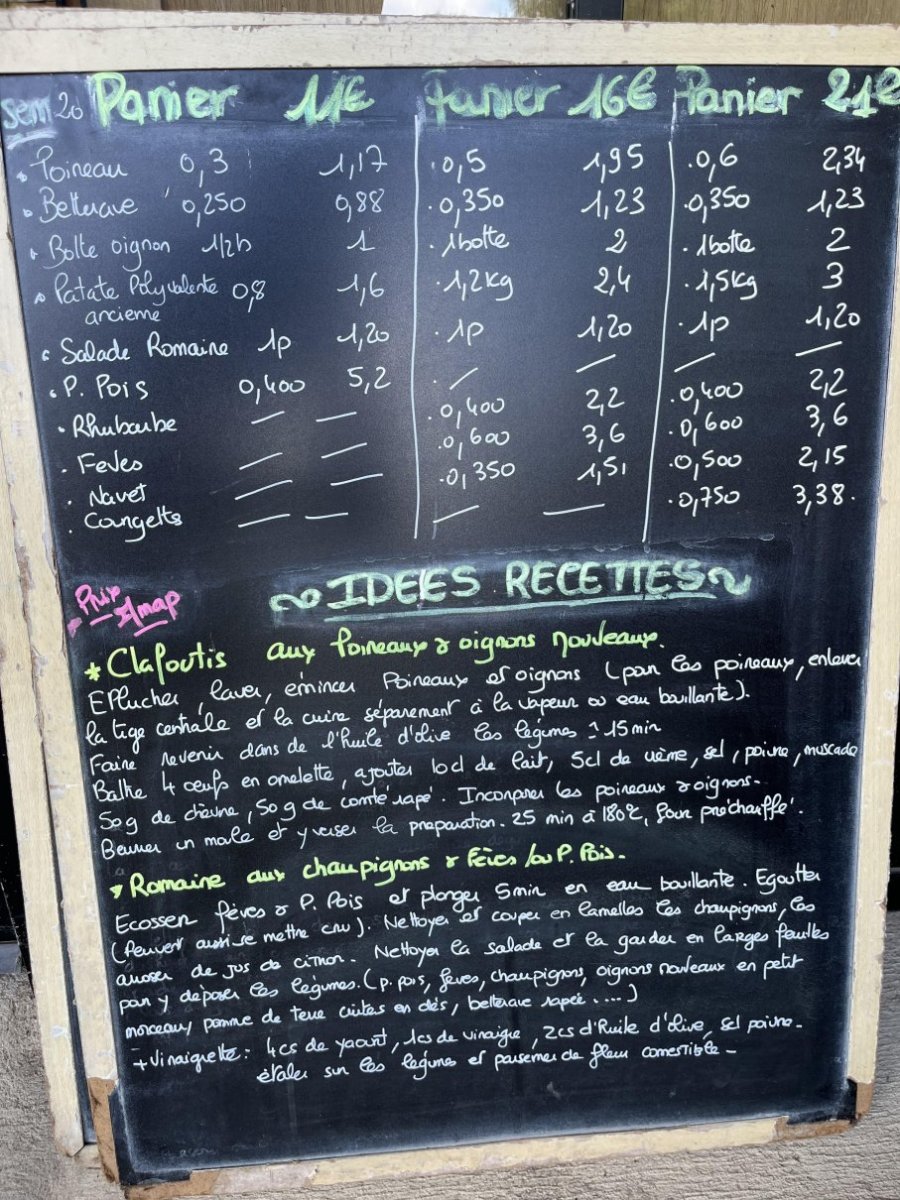 sem 20 Panier 11€ Panier 16€ Panier 21€
. Poireau 0,3 1,17 . 0,5 1,95 . 0,6 2,34
. Betterave 0,250 0,88 . 0,350 1,23 . 0,350 1,23
. Botte oignon 1/2b 1 . 1botte 2 . 1botte 2
. Patate Polyvalente 0,8 1,6 . 1,2kg 2,4 . 1,5kg 3
ancienne
. Salade Romaine 1p 1,20 . 1p 1,20 . 1p 1,20
. P. Pois 0,400 5,2 . / / / /
. Rhubarbe / / . 0,400 2,2 . 0,400 2,2
. Feves / / . 0,600 3,6 . 0,600 3,6
. Navet / / . 0,350 1,51 . 0,500 2,15
. Courgetts / / / / . 0,750 3,38.
~ IDEES RECETTES ~
Prix
Amap
* Clafoutis aux Poireaux & oignons nouveaux.
Eplucher, laver, émincer Poireaux et oignons (pour les poireaux, enlever
la tige centrale et la cuire séparement à la vapeur ou eau bouillante).
Faire revenir dans de l'huile d'olive les légumes ~ 15 min
Battre 4 oeufs en omelette, ajouter 10cl de lait, 5cl de crème, sel, poivre, muscade
50g de chèvre, 50g de comté rapé. Incorporer les poireaux & oignons.
Beurrer un moule et y verser la preparation. 25 min à 180°C, four préchauffé.
* Romaine aux champignons & Fèves /ou P. Pois.
Ecosser fèves & P. Pois et plonger 5min en eau bouillante. Egoutter
(Peuvent aussi se mettre cru). Nettoyer et couper en lamelles les champignons, les
arroser de jus de citron. Nettoyer la salade et la garder en larges feuilles
pour y déposer les légumes. (p. pois, feves, champignons, oignons nouveaux en petit
morceaux, pomme de terre cuites en dés, betterave rapée ....)
+ Vinaigrette : 4cs de yaourt, 1cs de vinaigre, 2cs d'huile d'olive, sel poivre -
étaler sur les légumes et parsemer de fleur comestible -